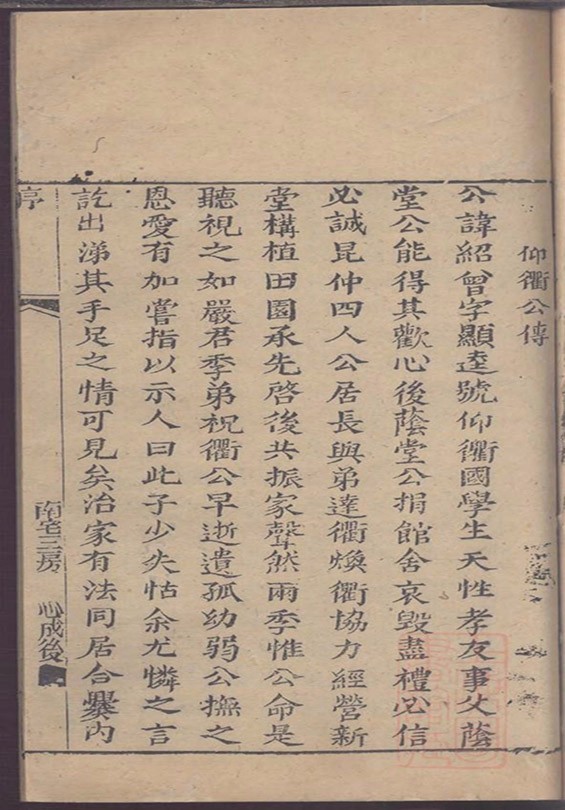 仰衢公傳
公諱紹曾字顯達號仰衢國學生天性孝友事父蔭
堂公能得其歡心後蔭堂公捐館舍哀毀盡禮必信
必誠昆仲四人公居長與弟達衢煥衢協力經營新
堂構植田園承先啓後共振家聲然兩季惟公命是
聽視之如嚴君季弟祝衢公早逝遺孤幼弱公撫之
恩愛有加嘗指以示人曰此子少失怙余尤憐之言
訖出涕其手足之情可見矣治家有法同居合爨內
序
南宅三房
心成後